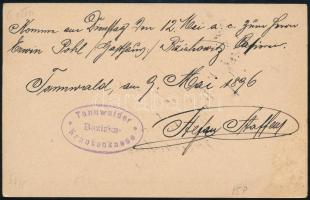 Komme am Dienstag den 12 Mai a. c. zum Herrn
Erwin Pohl (Gasthaus) Reichowitz
Tannwald am 9 Mai 1896
Tannwalder
Bezirks-
Krankenkasse
Stefan